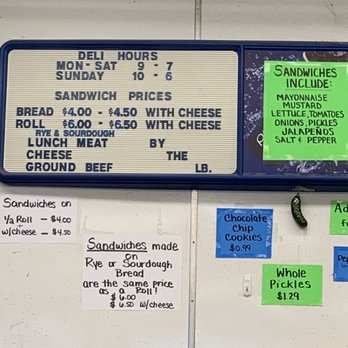 DELI HOURS
MON - SAT 9 - 7
SUNDAY 10 - 6
SANDWICH PRICES
BREAD $4.00 - $4.50 WITH CHEESE
ROLL $6.00 - $6.50 WITH CHEESE
RYE & SOURDOUGH
LUNCH MEAT BY
CHEESE THE
GROUND BEEF LB.
SANDWICHES
INCLUDE:
MAYONNAISE
MUSTARD
LETTUCE, TOMATOES
ONIONS, PICKLES
JALAPEÑOS
SALT & PEPPER
Sandwiches on
1/2 Roll - $4.00
w/cheese - $4.50
Sandwiches made
on
Rye or Sourdough
Bread
are the same price
as a Roll!
$6.00
$6.50 w/cheese
Chocolate
Chip
Cookies
$0.99
Whole
Pickles
$1.29